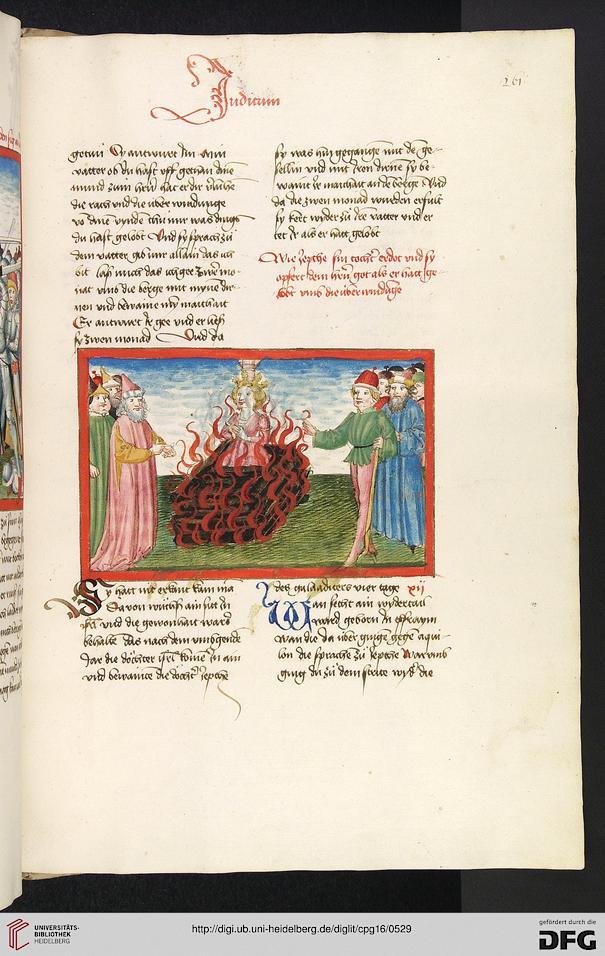 Judicum
261
getun Sy antwurt Im Min
vatter ob du hast uff gethan din
mund zum hern
die rach und die uber windunge
von dinen vynde thu mir was dinge
du hast gelobt Und sy sprach zu
dem vatter gib mir allain das ich
bit laß mich das ich gee zwen mo-
nat umb die berge mit myne dir-
nen und bewaine my maitthait
Er antwurt Ir gee und er ließ
sy zwen monad Und da
sy was hin gegange mit den ge-
spillin und mit iren dirnen sy be-
waint ir maitthait an de berge Und
da die zwen monad wurden erfult
sy kert wyder zu irem vatter und er
tet Ir als er hatt gelobt
Wie Jepthe sin tochter und sy
opfert dem hern got als er hatt ge-
lobt umb die uberwindunge
Sy hatt nit erkant kain ma
Davon wuchs ain sit In
und die gewonhait ward
behalte das nach dem umbgende
Jar die dochter isrl kome In ain
und bewainte die dochter Jepthe
des galaaditers vier tage xii
Wan secht ain
ward geborn In effraym
wan die da uber ginge gegen aqui-
lon die sprache zu Jepthe Warumb
ging du zu dem strite die
UNIVERSITÄTS-
BIBLIOTHEK
HEIDELBERG
http://digi.ub.uni-heidelberg.de/diglit/cpg16/0529
gefördert durch die
DFG